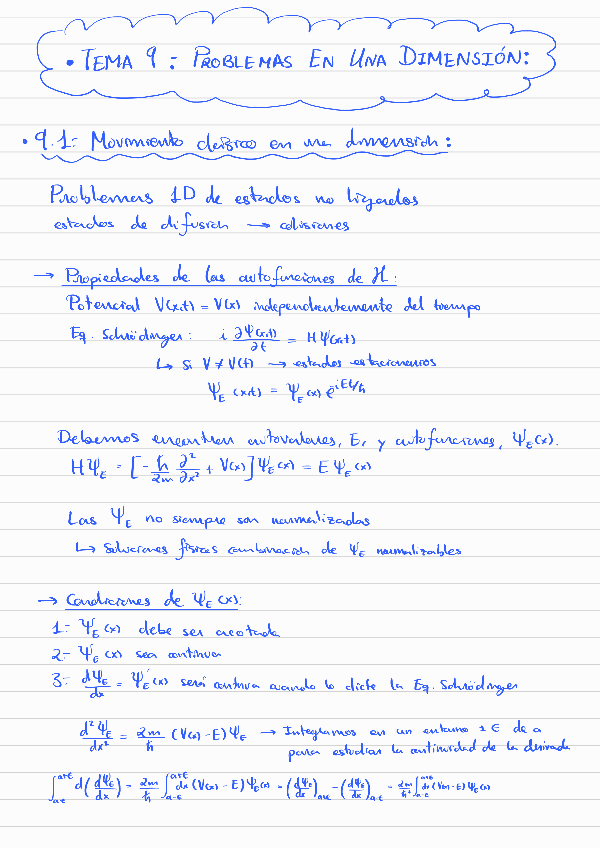 • TEMA 9: PROBLEMAS EN UNA DIMENSIÓN:
• 9.1: Movimiento clásico en una dimensión:
Problemas 1D de estados no ligados
estados de difusión → colisiones
→ Propiedades de las autofunciones de H:
Potencial V(x,t) = V(x) independientemente del tiempo
Eq. Schrödinger: i ∂Ψ(x,t)/∂t = HΨ(x,t)
↳ Si V ≠ V(t) → estados estacionarios
Ψ_E (x,t) = Ψ_E (x) e^{-iEt/ħ}
Debemos encontrar autovalores, E, y autofunciones, Ψ_E(x).
HΨ_E = [-ħ/2m ∂²/∂x² + V(x)] Ψ_E(x) = E Ψ_E(x)
Las Ψ_E no siempre son normalizadas
↳ Soluciones físicas combinación de Ψ_E normalizables
→ Condiciones de Ψ_E(x):
1- Ψ_E(x) debe ser acotada
2- Ψ_E(x) sea continua
3- dΨ_E/dx = Ψ_E'(x) será continua cuando lo dicte la Eq. Schrödinger
d²Ψ_E/dx² = 2m/ħ (V(x) - E) Ψ_E → Integramos en un entorno 2ε de a
para estudiar la continuidad de la derivada
∫_{a-ε}^{a+ε} d(dΨ_E/dx) = 2m/ħ ∫_{a-ε}^{a+ε} dx (V(x) - E) Ψ_E(x) = (dΨ_E/dx)_{a+ε} - (dΨ_E/dx)_{a-ε} = 2m/ħ² ∫_{a-ε}^{a+ε} dx (V(x) - E) Ψ_E(x)